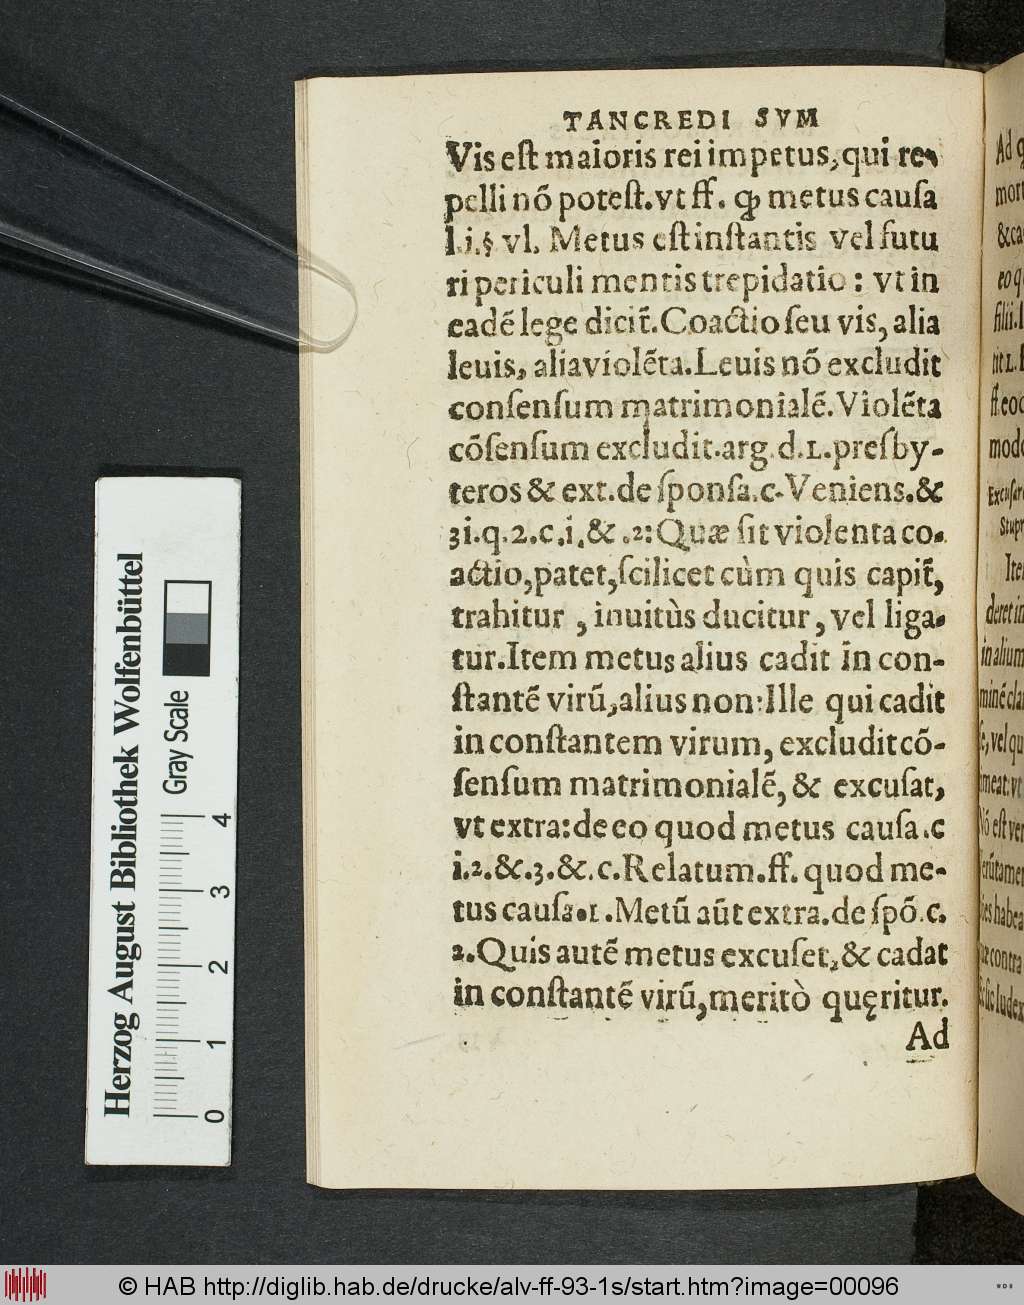 TANCREDI SVM
Vis eſt maioris rei impetus, qui re-
pelli nõ poteſt. vt ff. ꝙ metus cauſa
l.i.§ vl. Metus eſt inſtantis vel futu
ri periculi mentis trepidatio : vt in
eadẽ lege dicit̃. Coactio ſeu vis, alia
leuis, alia violẽta. Leuis nõ excludit
conſenſum matrimonialẽ. Violẽta
cõſenſum excludit. arg. d. L. preſby-
teros & ext. de ſponſa. c. Veniens. &
3i. q. 2. c. i. & .2: Quæ ſit violenta co-
actio, patet, ſcilicet cùm quis capit̃,
trahitur , inuitùs ducitur, vel liga-
tur. Item metus alius cadit in con-
ſtantẽ virũ, alius non: Ille qui cadit
in conſtantem virum, excludit cõ-
ſenſum matrimonialẽ, & excuſat,
vt extra: de eo quod metus cauſa .c
i. 2. &. 3. &. c. Relatum. ff. quod me-
tus cauſa. l. Metũ aũt extra. de ſpõ. c.
2. Quis autẽ metus excuſet, & cadat
in conſtantẽ virũ, meritò quęritur.
Ad
Ad
mort
eo q
filii.
ff. eod
modo
Excuſar
Stupr
Item
deret in
in alium
minẽ clar
ſe, vel qu
timeat. vt
Nõ eſt ver
ies habea
contra
ſic Iudex
Herzog August Bibliothek Wolfenbüttel
Gray Scale
0 1 2 3 4
© HAB http://diglib.hab.de/drucke/alv-ff-93-1s/start.htm?image=00096